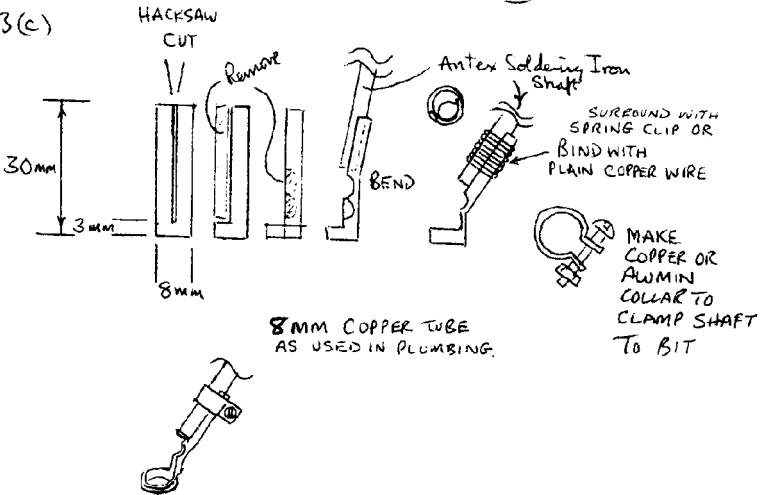 3(c)
HACKSAW
CUT
Remove
Antex Soldering Iron
Shaft
SURROUND WITH
SPRING CLIP OR
BIND WITH
PLAIN COPPER WIRE
30mm
BEND
3mm
8mm
MAKE
COPPER OR
ALUMIN
COLLAR TO
CLAMP SHAFT
TO BIT
8MM COPPER TUBE
AS USED IN PLUMBING.